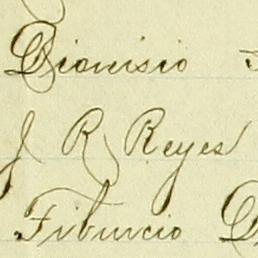 Dionisio
J R Reyes
Tiburcio